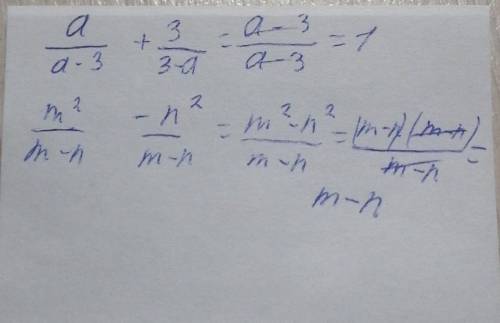 a/(a-3) + 3/(3-a) = (a-3)/(a-3) = 1
m²/(m-n) -n²/(m-n) = (m²-n²)/(m-n) = (m-n)(m-n)/(m-n) =
m-n